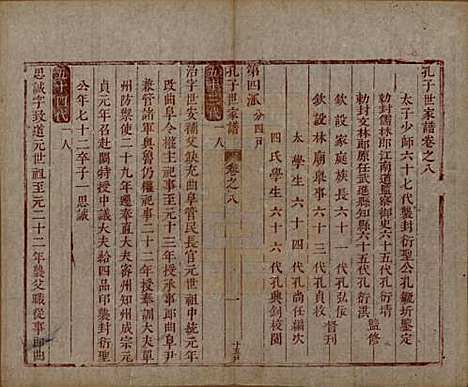 孔子世家譜卷之八
太子少師六十七代襲封衍聖公毓圻鑒定
敕封儒林郎江南道監察御史六十五代衍
敕封文林郎原任武進縣知縣六十五代衍淇 監修
欽設家庭族長六十一代孔弘依
欽設林廟舉事六十一代孔貞枚 督刊
太學生六十四代孔尚任編次
四氏學生六十六代孔興釗校閱
第四派 分四戶
孔子世家譜 卷之八 一 十五戶
五十三代 一人
治字世安補父欽充曲阜管民長官元世祖中統元年
阜尹令權主祀事至元十三年授承事郎曲阜尹
兼管諸軍奧魯仍權祀事二十二年授奉訓大夫密
州防禦使二十九年遷奉直大夫密州知州成宗元
貞元年召赴闕特授中議大夫給四品印襲封衍聖
公年七十二卒子一思誠
五十四代 一人
思誠字致道元世祖至元二十二年襲父職從事郎曲